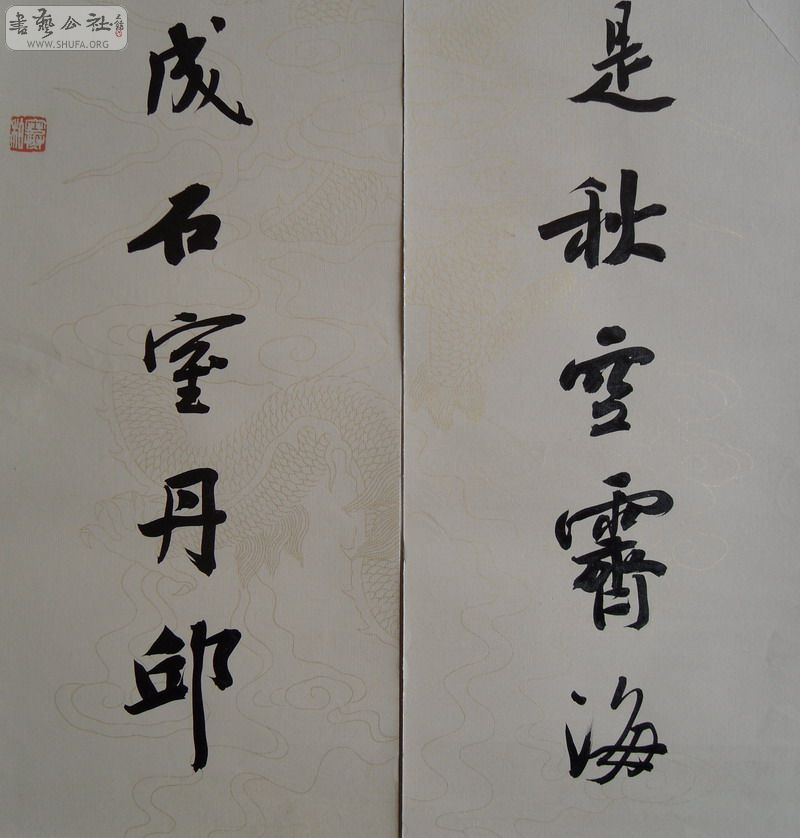 是秋空霽海
成石室丹邱
書藝公社
WWW.SHUFA.ORG